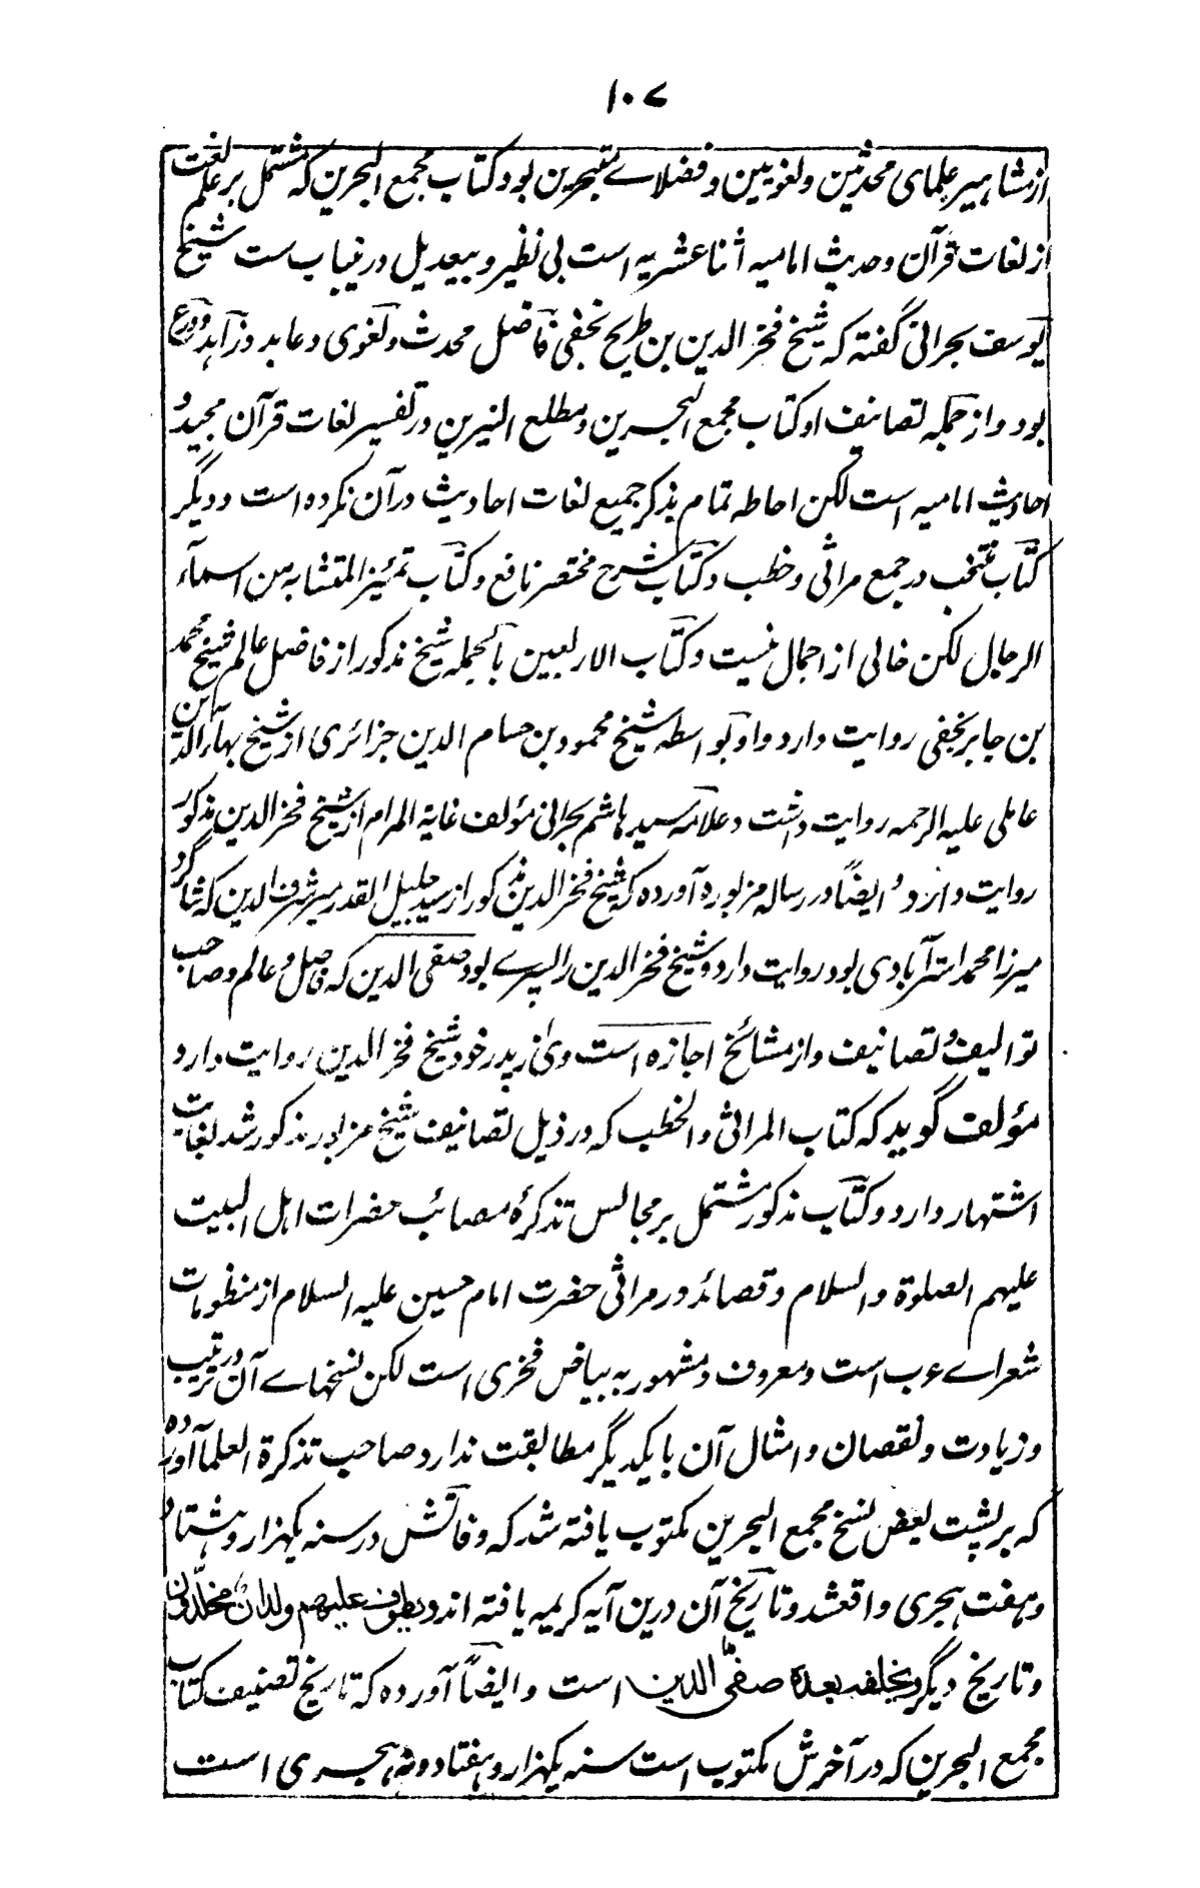 ۱۰۷
از مشاہیر علمای محدثین ولغویین وفضلاے متبحرین بود کتاب مجمع البحرین کہ مشتمل بر علم لغت
از لغات قرآن وحدیث امامیہ اثنا عشریہ است بی نظیر وبیعدیل درنیباب ست شیخ
یوسف بحرانی گفتہ کہ شیخ فخر الدین بن طریح نجفی فاضل محدث ولغوی وعابد وزاہد وورع
بود واز جملہ تصانیف او کتاب مجمع البحرین ومطلع النیرین در تفسیر لغات قرآن مجید و
احادیث امامیہ است لکن احاطہ تمام بذکر جمیع لغات احادیث درآن نکردہ است ودیگر
کتاب منتخب در جمع مراثی وخطب وکتاب شرح مختصر نافع وکتاب تمئیز المتشابہ من اسمآء
الرجال لکن خالی از اجمال نیست وکتاب الاربعین بالجملہ شیخ مذکور از فاضل عالم شیخ محمد
بن جابر نجفی روایت دارد واو بواسطہ شیخ محمود بن حسام الدین جزائری از شیخ بہآء الدین
عاملی علیہ الرحمہ روایت داشت وعلامہ سید ہاشم بحرانی مؤلف غایۃ المرام از شیخ فخر الدین مذکور
روایت دارد و ایضاً در رسالہ مزبورہ آوردہ کہ شیخ فخر الدین مذکور از سید جلیل القدر میر شرف الدین کہ شاگرد
میرزا محمد استرآبادی بود روایت دارد وشیخ فخر الدین را پسرے بود صفی الدین کہ فاضل وعالم وصاحب
توالیف وتصانیف واز مشائخ اجازہ است وی از پدر خود شیخ فخر الدین روایت دارد
مؤلف گوید کہ کتاب المراثی والخطب کہ در ذیل تصانیف شیخ مزبور مذکور شد بغایت
اشتہار دارد وکتاب مذکور مشتمل بر مجالس تذکرۂ مصائب حضرات اہل البیت
علیہم الصلوۃ والسلام وقصائد در مراثی حضرت امام حسین علیہ السلام از منظومات
شعراے عرب است ومعروف ومشہور بہ بیاض فخری است لکن نسخہاے آن در ترتیب
وزیادت ونقصان وامثال آن با یکدیگر مطابقت ندارد صاحب تذکرۃ العلما آوردہ
کہ بر پشت بعض نسخ مجمع البحرین مکتوب یافتہ شد کہ وفاتش در سنہ یکہزار وہشتاد
وہفت ہجری واقعشد وتاریخ آن درین آیہ کریمہ یافتہ اند ویطوف علیہم ولدان مخلّدون
وتاریخ دیگر ویخلفہ بعدہ صفیّ الدین است وایضاً آوردہ کہ تاریخ تصنیف کتاب
مجمع البحرین کہ در آخرش مکتوب است سنہ یکہزار وہفتاد ونہ ہجری است